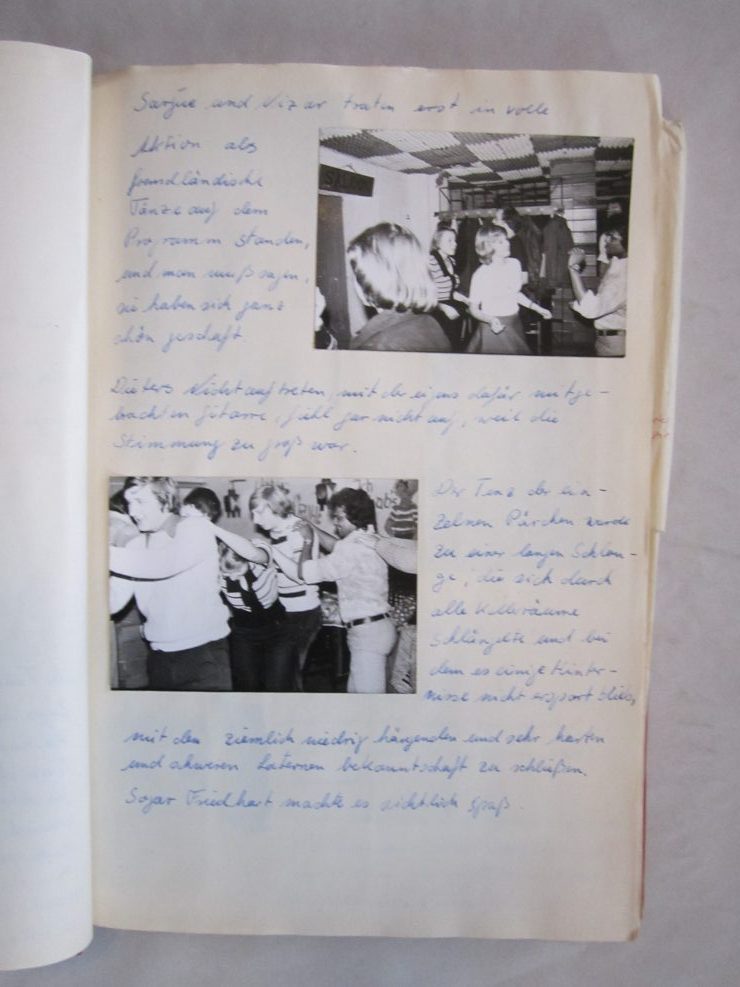 und Nizar traten erst in volle
Aktion als
fremdländische
Tänze auf dem
Programm standen,
und man muß sagen,
sie haben sich ganz
schön geschaft
Dieters Nichtauftreten, mit der eigens dafür mitge-
bachten Gitarre, fiehl gar nicht auf, weil die
Stimmung zu groß war.
Der Tanz der ein-
zelnen Pärchen wurde
zu einer langen Schlan-
ge, die sich durch
alle Kellerräume
schlängelte und bei
dem es einige Hinter-
nisse nicht erspart blieb,
mit den ziemlich niedrig hängenden und sehr harten
und schweren Laternen bekanntschaft zu schließen.
Sogar Friedhart machte es sichtlich spaß.